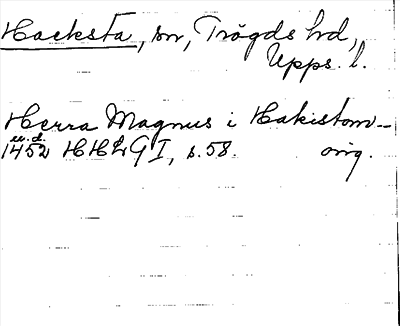 Hacksta, sn, Trögds hd,
Upps. l.
Herra Magnus i Hakistom
u.d.
1452 HHLG I, s. 58. orig.